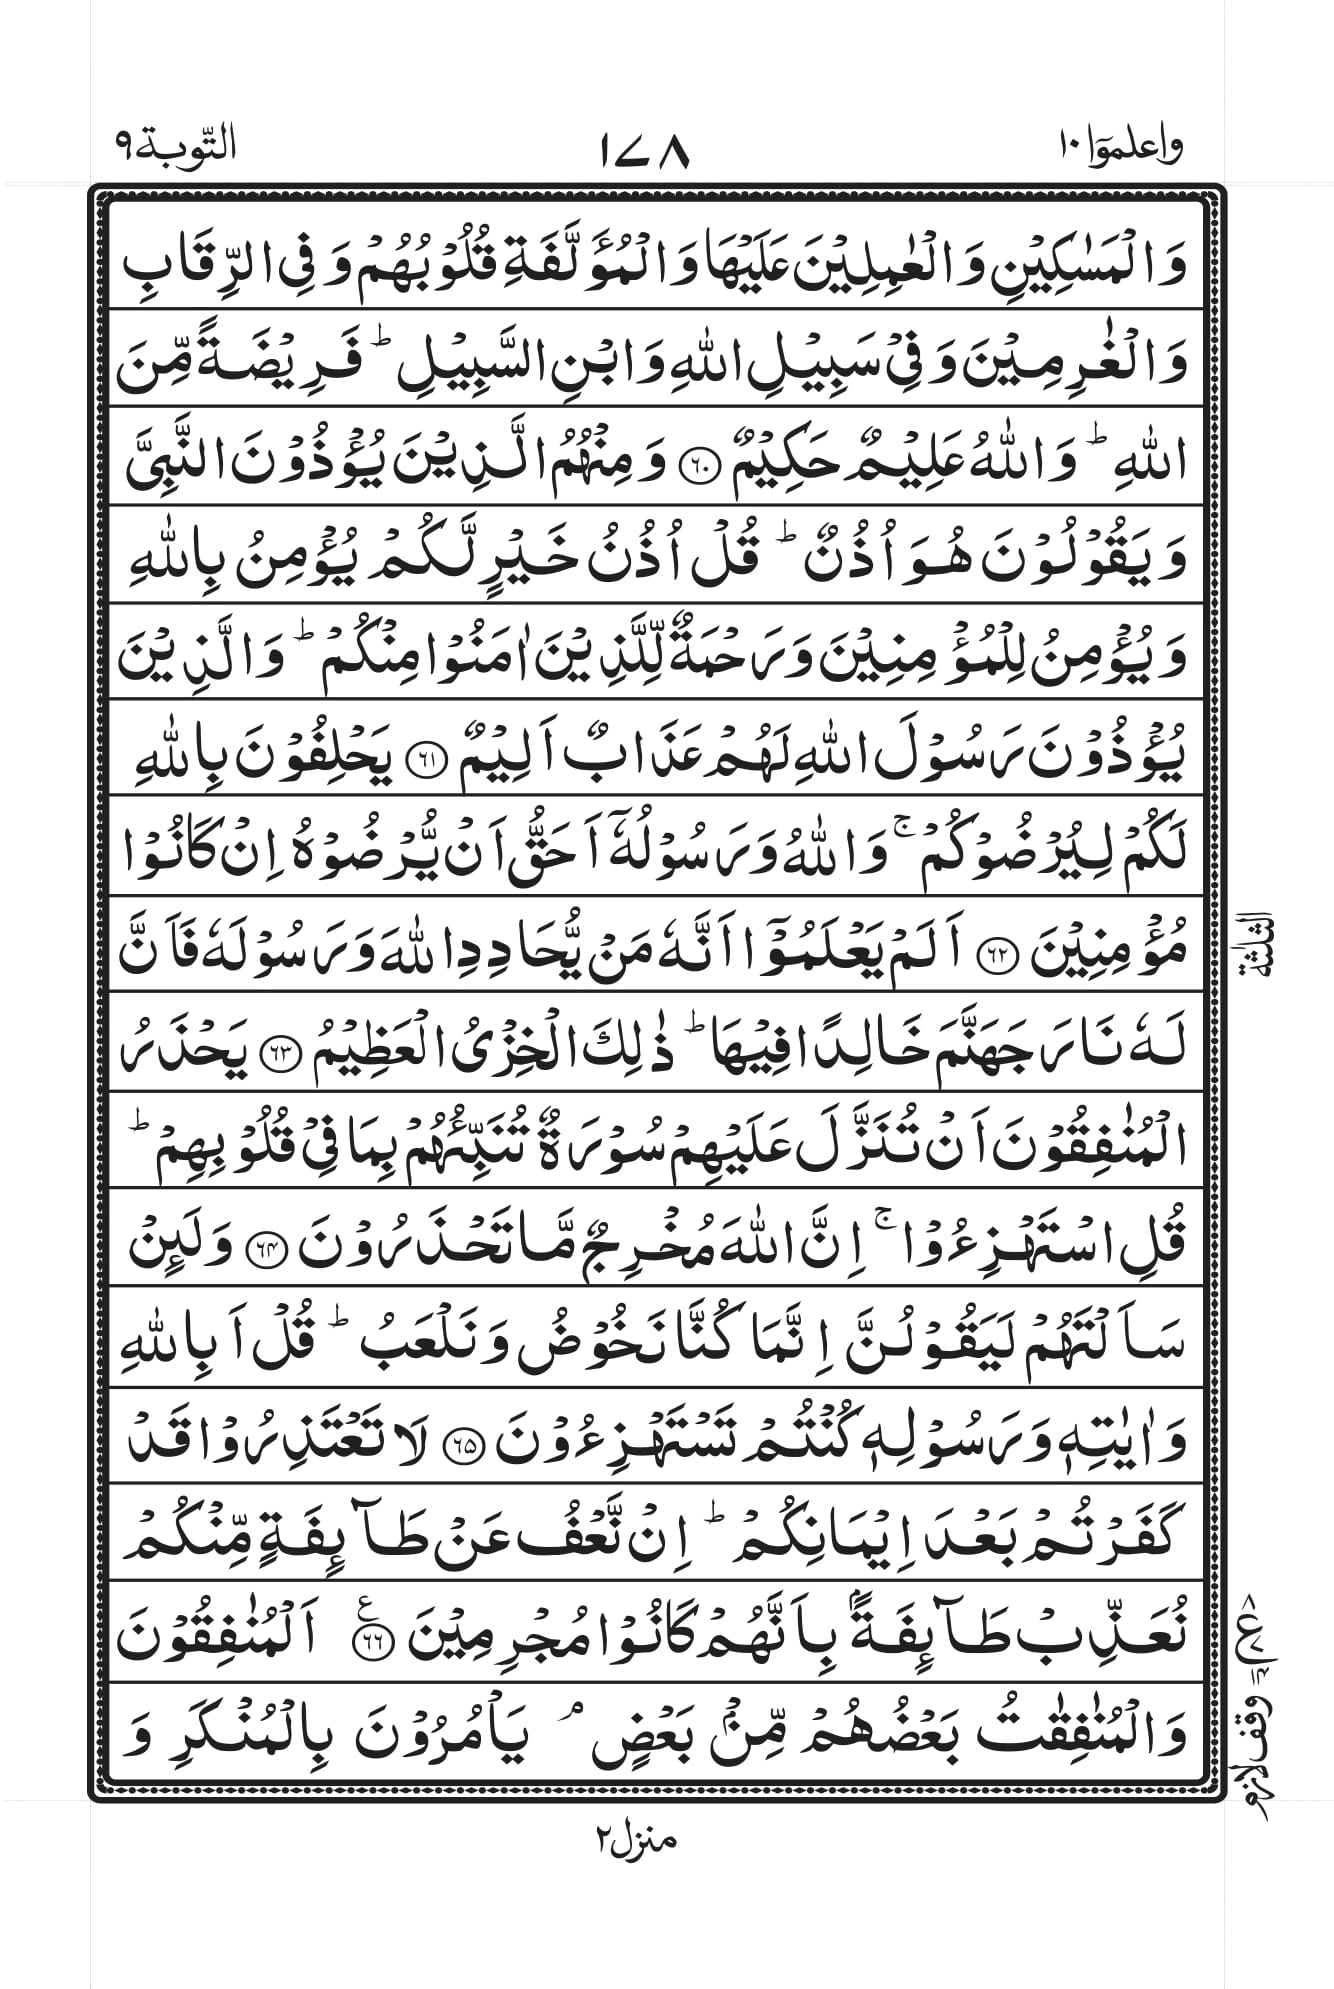 واعلموٓا ١٠
١٧٨
التّوبة ٩
وَالۡمَسٰكِيۡنِ وَالۡعٰمِلِيۡنَ عَلَيۡهَا وَالۡمُؤَلَّفَةِ قُلُوۡبُهُمۡ وَفِى الرِّقَابِ
وَالۡغٰرِمِيۡنَ وَفِىۡ سَبِيۡلِ اللّٰهِ وَابۡنِ السَّبِيۡلِ ؕ فَرِيۡضَةً مِّنَ
اللّٰهِ ؕ وَاللّٰهُ عَلِيۡمٌ حَكِيۡمٌ ﴿۶۰﴾ وَمِنۡهُمُ الَّذِيۡنَ يُؤۡذُوۡنَ النَّبِىَّ
وَيَقُوۡلُوۡنَ هُوَ اُذُنٌ ؕ قُلۡ اُذُنُ خَيۡرٍ لَّكُمۡ يُؤۡمِنُ بِاللّٰهِ
وَيُؤۡمِنُ لِلۡمُؤۡمِنِيۡنَ وَرَحۡمَةٌ لِّلَّذِيۡنَ اٰمَنُوۡا مِنۡكُمۡ ؕ وَالَّذِيۡنَ
يُؤۡذُوۡنَ رَسُوۡلَ اللّٰهِ لَهُمۡ عَذَابٌ اَلِيۡمٌ ﴿۶۱﴾ يَحۡلِفُوۡنَ بِاللّٰهِ
لَكُمۡ لِيُرۡضُوۡكُمۡ ۚ وَاللّٰهُ وَرَسُوۡلُهٗۤ اَحَقُّ اَنۡ يُّرۡضُوۡهُ اِنۡ كَانُوۡا
مُؤۡمِنِيۡنَ ﴿۶۲﴾ اَلَمۡ يَعۡلَمُوۡۤا اَنَّهٗ مَنۡ يُّحَادِدِ اللّٰهَ وَرَسُوۡلَهٗ فَاَنَّ
لَهٗ نَارَ جَهَنَّمَ خَالِدًا فِيۡهَا ؕ ذٰلِكَ الۡخِزۡىُ الۡعَظِيۡمُ ﴿۶۳﴾ يَحۡذَرُ
الۡمُنٰفِقُوۡنَ اَنۡ تُنَزَّلَ عَلَيۡهِمۡ سُوۡرَةٌ تُنَبِّئُهُمۡ بِمَا فِىۡ قُلُوۡبِهِمۡ ؕ
قُلِ اسۡتَهۡزِءُوۡا ۚ اِنَّ اللّٰهَ مُخۡرِجٌ مَّا تَحۡذَرُوۡنَ ﴿۶۴﴾ وَلَئِنۡ
سَاَلۡتَهُمۡ لَيَقُوۡلُنَّ اِنَّمَا كُنَّا نَخُوۡضُ وَنَلۡعَبُ ؕ قُلۡ اَبِاللّٰهِ
وَاٰيٰتِهٖ وَرَسُوۡلِهٖ كُنۡتُمۡ تَسۡتَهۡزِءُوۡنَ ﴿۶۵﴾ لَا تَعۡتَذِرُوۡا قَدۡ
كَفَرۡتُمۡ بَعۡدَ اِيۡمَانِكُمۡ ؕ اِنۡ نَّعۡفُ عَنۡ طَآئِفَةٍ مِّنۡكُمۡ
نُعَذِّبۡ طَآئِفَةًۢ بِاَنَّهُمۡ كَانُوۡا مُجۡرِمِيۡنَ ﴿۶۶﴾ ع اَلۡمُنٰفِقُوۡنَ
وَالۡمُنٰفِقٰتُ بَعۡضُهُمۡ مِّنۡۢ بَعۡضٍ ۘ يَاۡمُرُوۡنَ بِالۡمُنۡكَرِ وَ
الثلثة
وقف لازم
منزل ٢